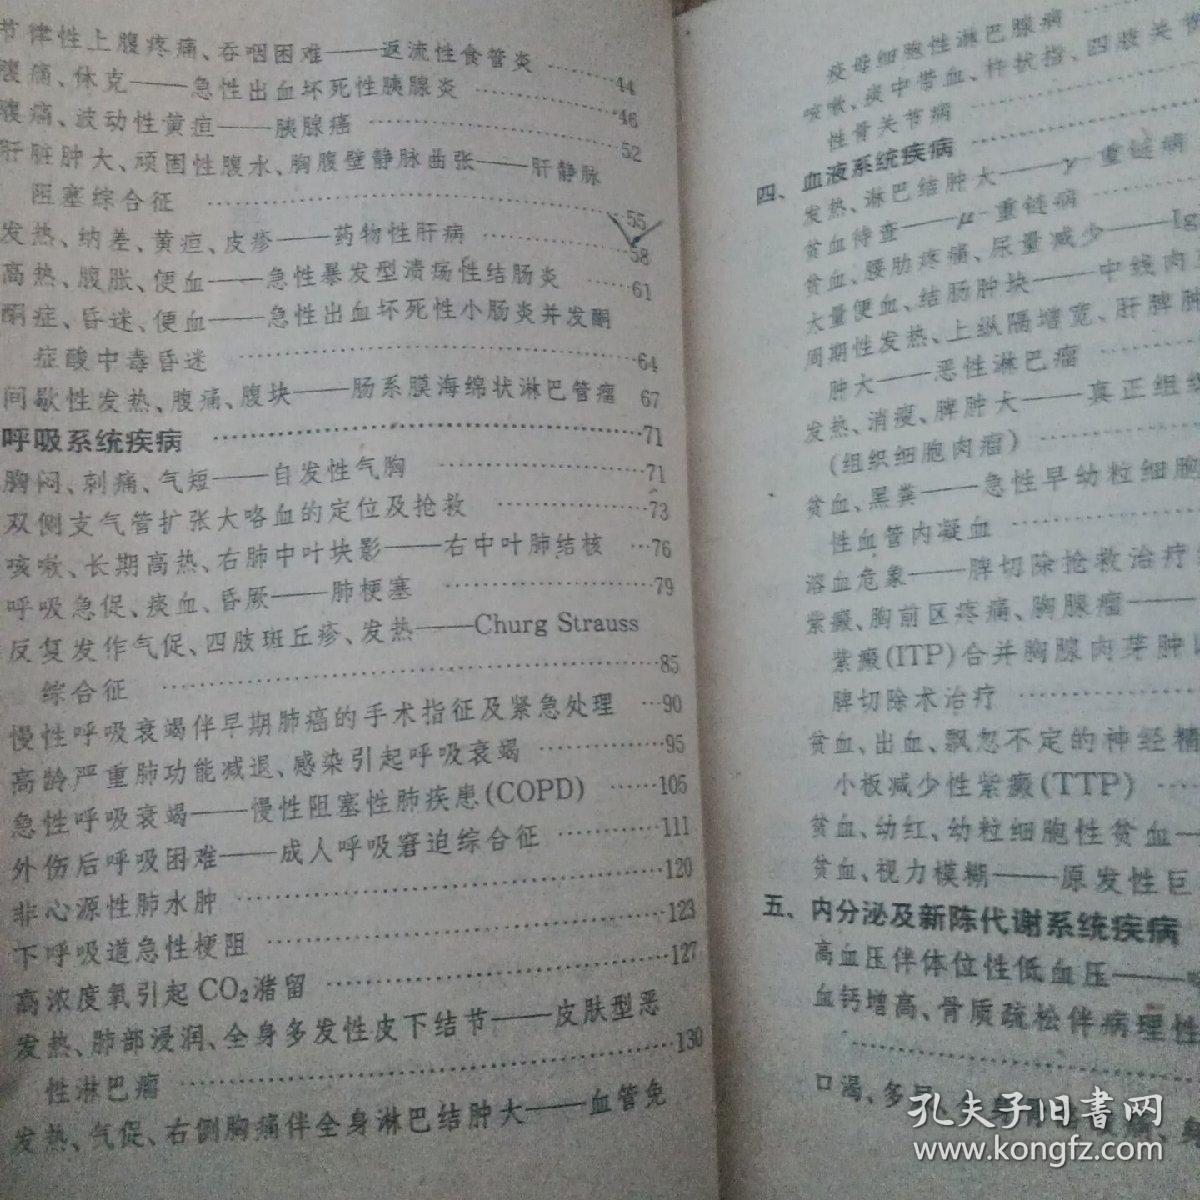 节律性上腹疼痛、吞咽困难——返流性食管炎 ……44
腹痛、休克——急性出血坏死性胰腺炎 ……46
腹痛、波动性黄疸——胰腺癌 ……52
肝脏肿大、顽固性腹水、胸腹壁静脉曲张——肝静脉
阻塞综合征 ……55
发热、纳差、黄疸、皮疹——药物性肝病 ……58
高热、腹胀、便血——急性暴发型溃疡性结肠炎 ……61
酮症、昏迷、便血——急性出血坏死性小肠炎并发酮
症酸中毒昏迷 ……64
间歇性发热、腹痛、腹块——肠系膜海绵状淋巴管瘤 67
呼吸系统疾病 ……71
胸闷、刺痛、气短——自发性气胸 ……71
双侧支气管扩张大咯血的定位及抢救 ……73
咳嗽、长期高热、右肺中叶块影——右中叶肺结核 …76
呼吸急促、痰血、昏厥——肺梗塞 ……79
反复发作气促、四肢斑丘疹、发热——Churg Strauss
综合征 ……85
慢性呼吸衰竭伴早期肺癌的手术指征及紧急处理 …90
高龄严重肺功能减退、感染引起呼吸衰竭 ……95
急性呼吸衰竭——慢性阻塞性肺疾患(COPD) ……105
外伤后呼吸困难——成人呼吸窘迫综合征 ……111
非心源性肺水肿 ……120
下呼吸道急性梗阻 ……123
高浓度氧引起CO₂潴留 ……127
发热、肺部浸润、全身多发性皮下结节——皮肤型恶
性淋巴瘤 ……130
发热、气促、右侧胸痛伴全身淋巴结肿大——血管免
疫母细胞性淋巴腺病 ……
咳嗽、痰中带血、杵状指、四肢关节
性骨关节病 ……
四、血液系统疾病 ……
发热、淋巴结肿大——γ-重链病
贫血待查——μ-重链病
贫血、腰肋疼痛、尿量减少——Ig
大量便血、结肠肿块——中线肉
周期性发热、上纵隔增宽、肝脾
肿大——恶性淋巴瘤
发热、消瘦、脾肿大——真正组织
(组织细胞肉瘤) ……
贫血、黑粪——急性早幼粒细胞
性血管内凝血 ……
溶血危象——脾切除抢救治疗
紫癜、胸前区疼痛、胸腺瘤——
紫癜(ITP)合并胸腺肉芽肿
脾切除术治疗 ……
贫血、出血、飘忽不定的神经精
小板减少性紫癜(TTP) ……
贫血、幼红、幼粒细胞性贫血—
贫血、视力模糊——原发性巨
五、内分泌及新陈代谢系统疾病
高血压伴体位性低血压——
血钙增高、骨质疏松伴病理性
……
口渴、多尿、
孔夫子旧书网
www.kongfz.com